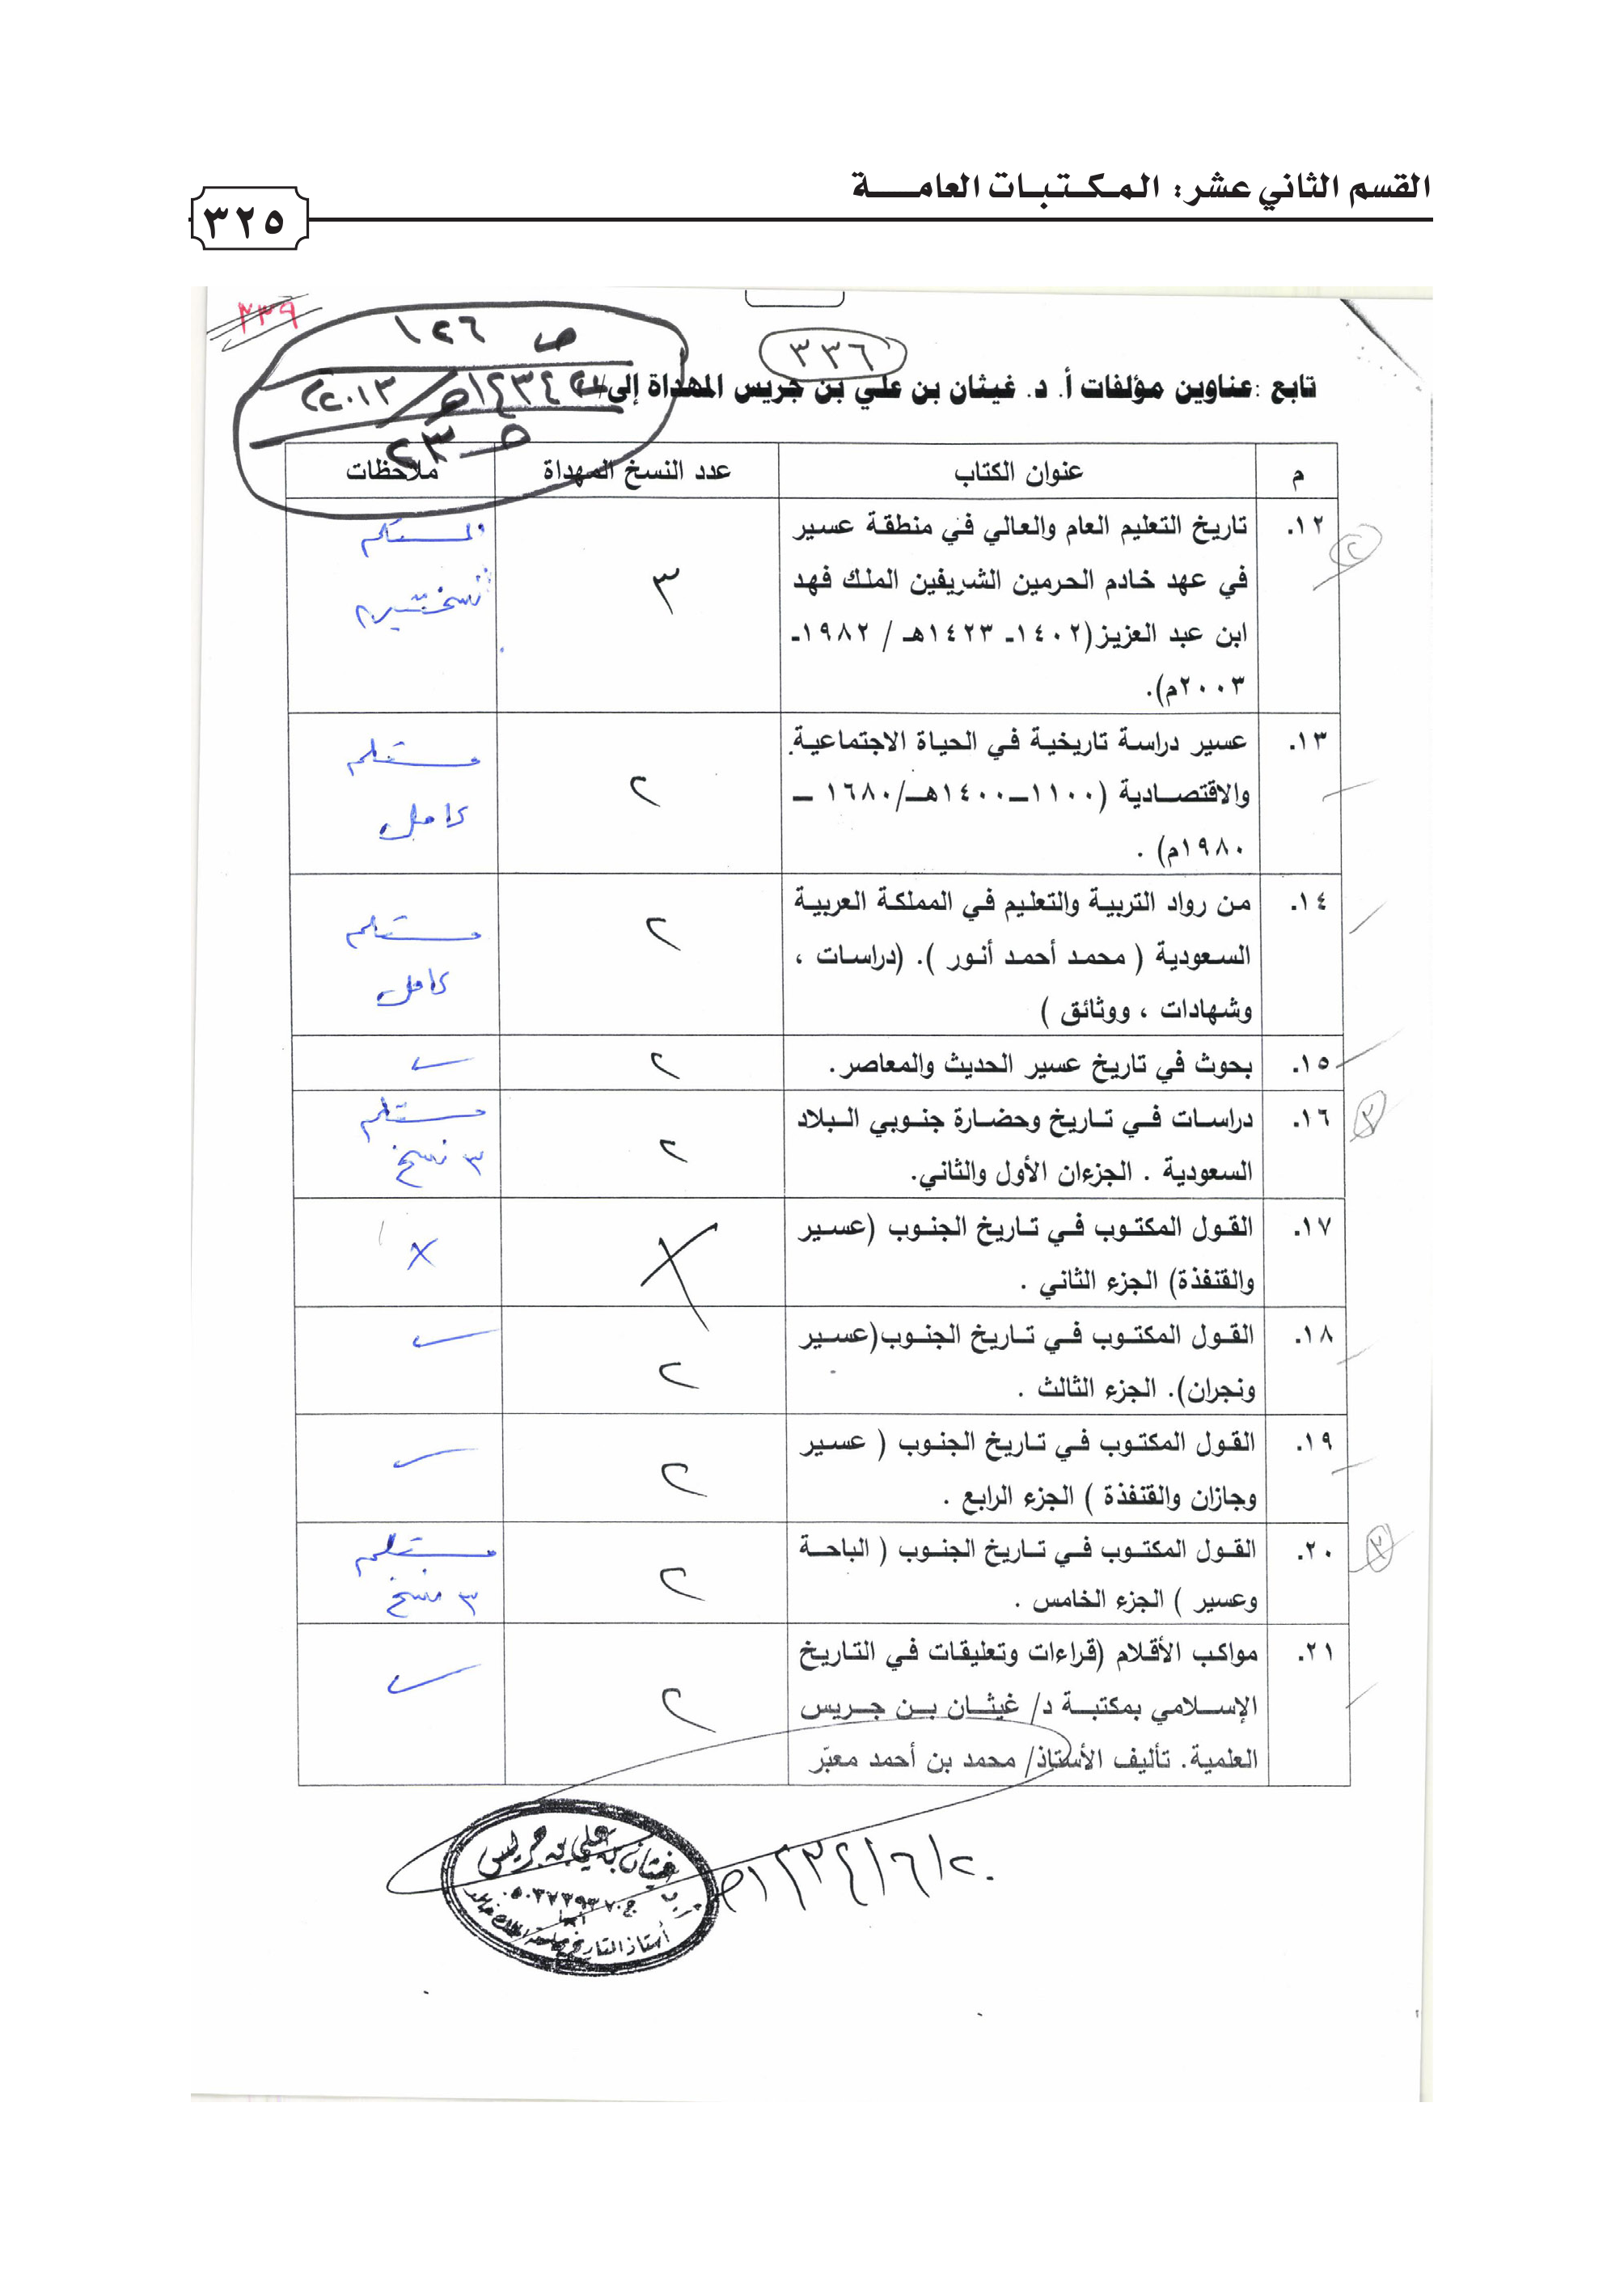 القسم الثاني عشر: المكتبات العامة
٣٢٥
٢٣٩
ص ١٤٦
٣٣٦
١٤٣٤هـ / ٢٠١٣م
تابع :عناوين مؤلفات أ. د. غيثان بن علي بن جريس المهداة إلى/
ص ٢٣
م عنوان الكتاب عدد النسخ المهداة ملاحظات
١٢. تاريخ التعليم العام والعالي في منطقة عسير
في عهد خادم الحرمين الشريفين الملك فهد
ابن عبد العزيز(١٤٠٢ـ ١٤٢٣هـ / ١٩٨٢ـ
٢٠٠٣م).
٣
المستلم
نسختين
٢
١٣. عسير دراسة تاريخية في الحياة الاجتماعية
والاقتصادية (١١٠٠ــ١٤٠٠هــ/١٦٨٠ ــ
١٩٨٠م) .
٢
مستلم
كامل
١٤. من رواد التربية والتعليم في المملكة العربية
السعودية ( محمد أحمد أنور ). (دراسات ،
وشهادات ، ووثائق )
٢
مستلم
كامل
١٥. بحوث في تاريخ عسير الحديث والمعاصر. ٢ ✓
١٦. دراسات في تاريخ وحضارة جنوبي البلاد
السعودية . الجزءان الأول والثاني.
٢
مستلم
٣ نسخ
٣
١٧. القول المكتوب في تاريخ الجنوب (عسير
والقنفذة) الجزء الثاني .
X X
١٨. القول المكتوب في تاريخ الجنوب(عسير
ونجران). الجزء الثالث .
٢ ✓
١٩. القول المكتوب في تاريخ الجنوب ( عسير
وجازان والقنفذة ) الجزء الرابع .
٢ ✓
٢٠. القول المكتوب في تاريخ الجنوب ( الباحة
وعسير ) الجزء الخامس .
٢
مستلم
٣ نسخ
٣
٢١. مواكب الأقلام (قراءات وتعليقات في التاريخ
الإسلامي بمكتبة د/ غيثان بن جريس
العلمية. تأليف الأستاذ/ محمد بن أحمد معبّر
٢ ✓
٢٠/٦/١٤٣٤هـ
غيثان بن علي بن جريس
أبها
أستاذ التاريخ بجامعة الملك خالد